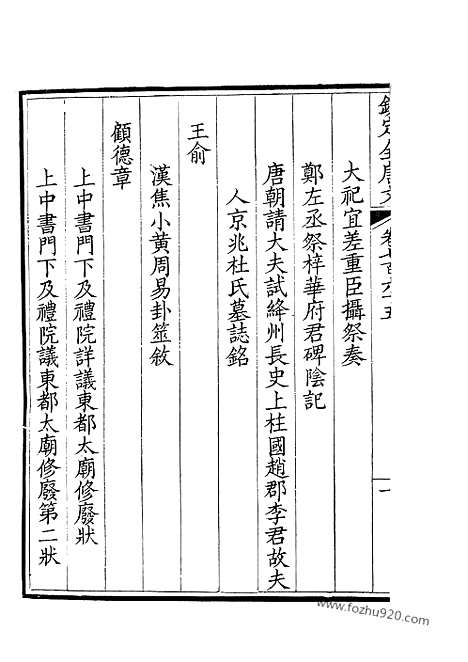 欽定全唐文 卷七百六十五 一
大祀宜差重臣攝祭奏
鄭左丞祭梓華府君碑陰記
唐朝請大夫試絳州長史上柱國趙郡李君故夫
人京兆杜氏墓誌銘
王俞
漢焦小黃周易卦筮敘
顧德章
上中書門下及禮院詳議東都太廟修廢狀
上中書門下及禮院議東都太廟修廢第二狀
www.fozhu920.com